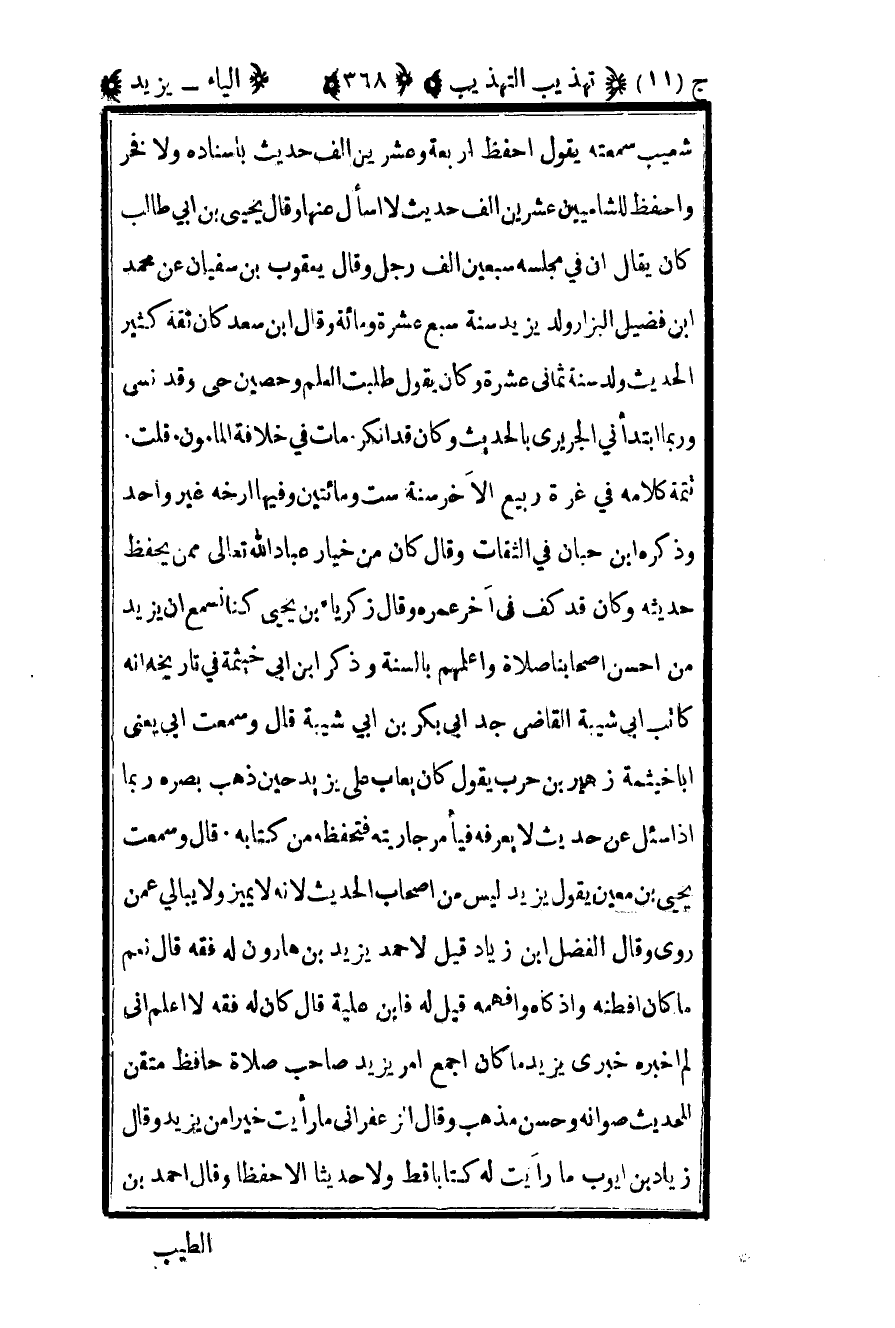 ج (١١) تهذيب التهذيب ٣٦٨ الياء ــ يزيد
شعيب سمعته يقول احفظ اربعة وعشرين الف حديث باسناده ولا فخر
واحفظ للشاميين عشرين الف حديث لا اسأل عنها وقال يحيى بن ابي طالب
كان يقال ان في مجلسه سبعين الف رجل وقال يعقوب بن سفيان عن محمد
ابن فضيل البزار ولد يزيد سنة سبع عشرة ومائة وقال ابن سعد كان ثقة كثير
الحديث ولد سنة ثمانى عشرة وكان يقول طلبت العلم وحصين حى وقد نسى
وربما ابتدأني الجريرى بالحديث وكان قد انكر · مات في خلافة المامون · قلت ·
تتمة كلامه في غرة ربيع الآخر سنة ست ومائتين وفيها ارخه غير واحد
وذكره ابن حبان في الثقات وقال كان من خيار عباد الله تعالى ممن يحفظ
حديثه وكان قد كف فى آخر عمره وقال زكرياء بن يحيى كنا نسمع ان يزيد
من احسن اصحابنا صلاة واعلمهم بالسنة وذكر ابن ابي خيثمة في تاريخه انه
كاتب ابى شيبة القاضى جد ابى بكر بن ابي شيبة قال وسمعت ابي يعنى
ابا خيثمة زهير بن حرب يقول كان يعاب على يزيد حين ذهب بصره ربما
اذا سئل عن حديث لا يعرفه فيأمر جاريته فتحفظه من كتابه · قال وسمعت
يحيى بن معين يقول يزيد ليس من اصحاب الحديث لانه لا يميز ولا يبالي عمن
روى وقال الفضل ابن زياد قيل لاحمد يزيد بن هارون له فقه قال نعم
ما كان افطنه واذكاه وافهمه قيل له فابن علية قال كان له فقه لا اعلم انى
لم اخبره خبرى يزيد ما كان اجمع امر يزيد صاحب صلاة حافظ متقن
للحديث صوانه وحسن مذهب وقال الزعفرانى ما رأيت خيرا من يزيد وقال
زياد بن ايوب ما رأيت له كتابا قط ولا حديثا الا حفظا وقال احمد بن
الطيب